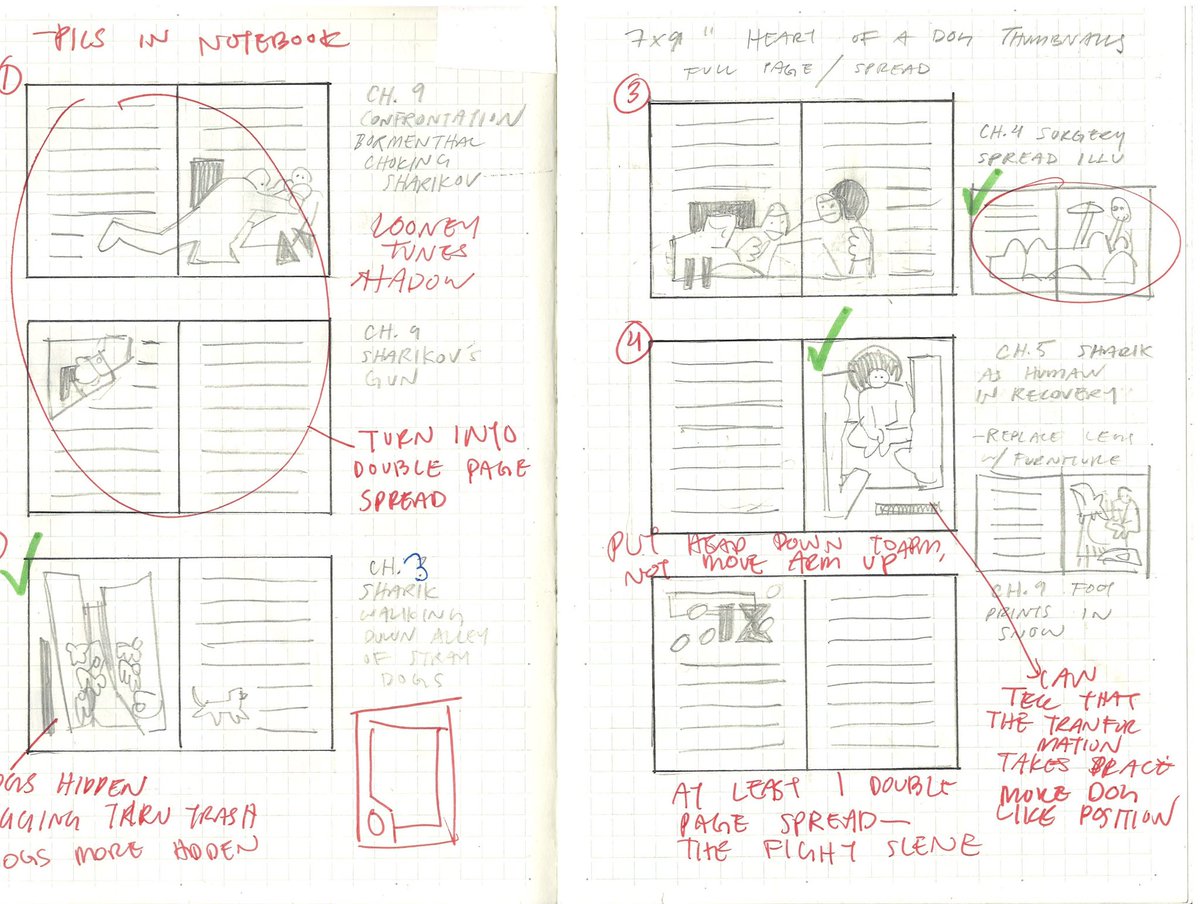 -PICS IN NOTEBOOK
1
CH. 9
CONFRONTATION
BORMENTHAL
CHOKING
SHARIKOV
LOONEY
TUNES
SHADOW
CH. 9
SHARIKOV'S
GUN
TURN INTO
DOUBLE PAGE
SPREAD
CH. 3
SHARIK
WALKING
DOWN ALLEY
OF STRAY
DOGS
OGS HIDDEN
GGING THRU TRASH
OGS MORE HIDDEN
7x9" HEART OF A DOG THUMBNAILS
FULL PAGE / SPREAD
3
CH. 4 SURGERY
SPREAD ILLU
4
CH. 5 SHARIK
AS HUMAN
IN RECOVERY
-REPLACE LEGS
W/ FURNITURE
PUT HEAD DOWN TO ARM,
NOT MOVE ARM UP
CH. 9 FOOT
PRINTS IN
SNOW
CAN
TELL THAT
THE TRANFOR
MATION
TAKES PLACE
MORE DOG
LIKE POSITION
AT LEAST 1 DOUBLE
PAGE SPREAD—
THE FIGHT SCENE